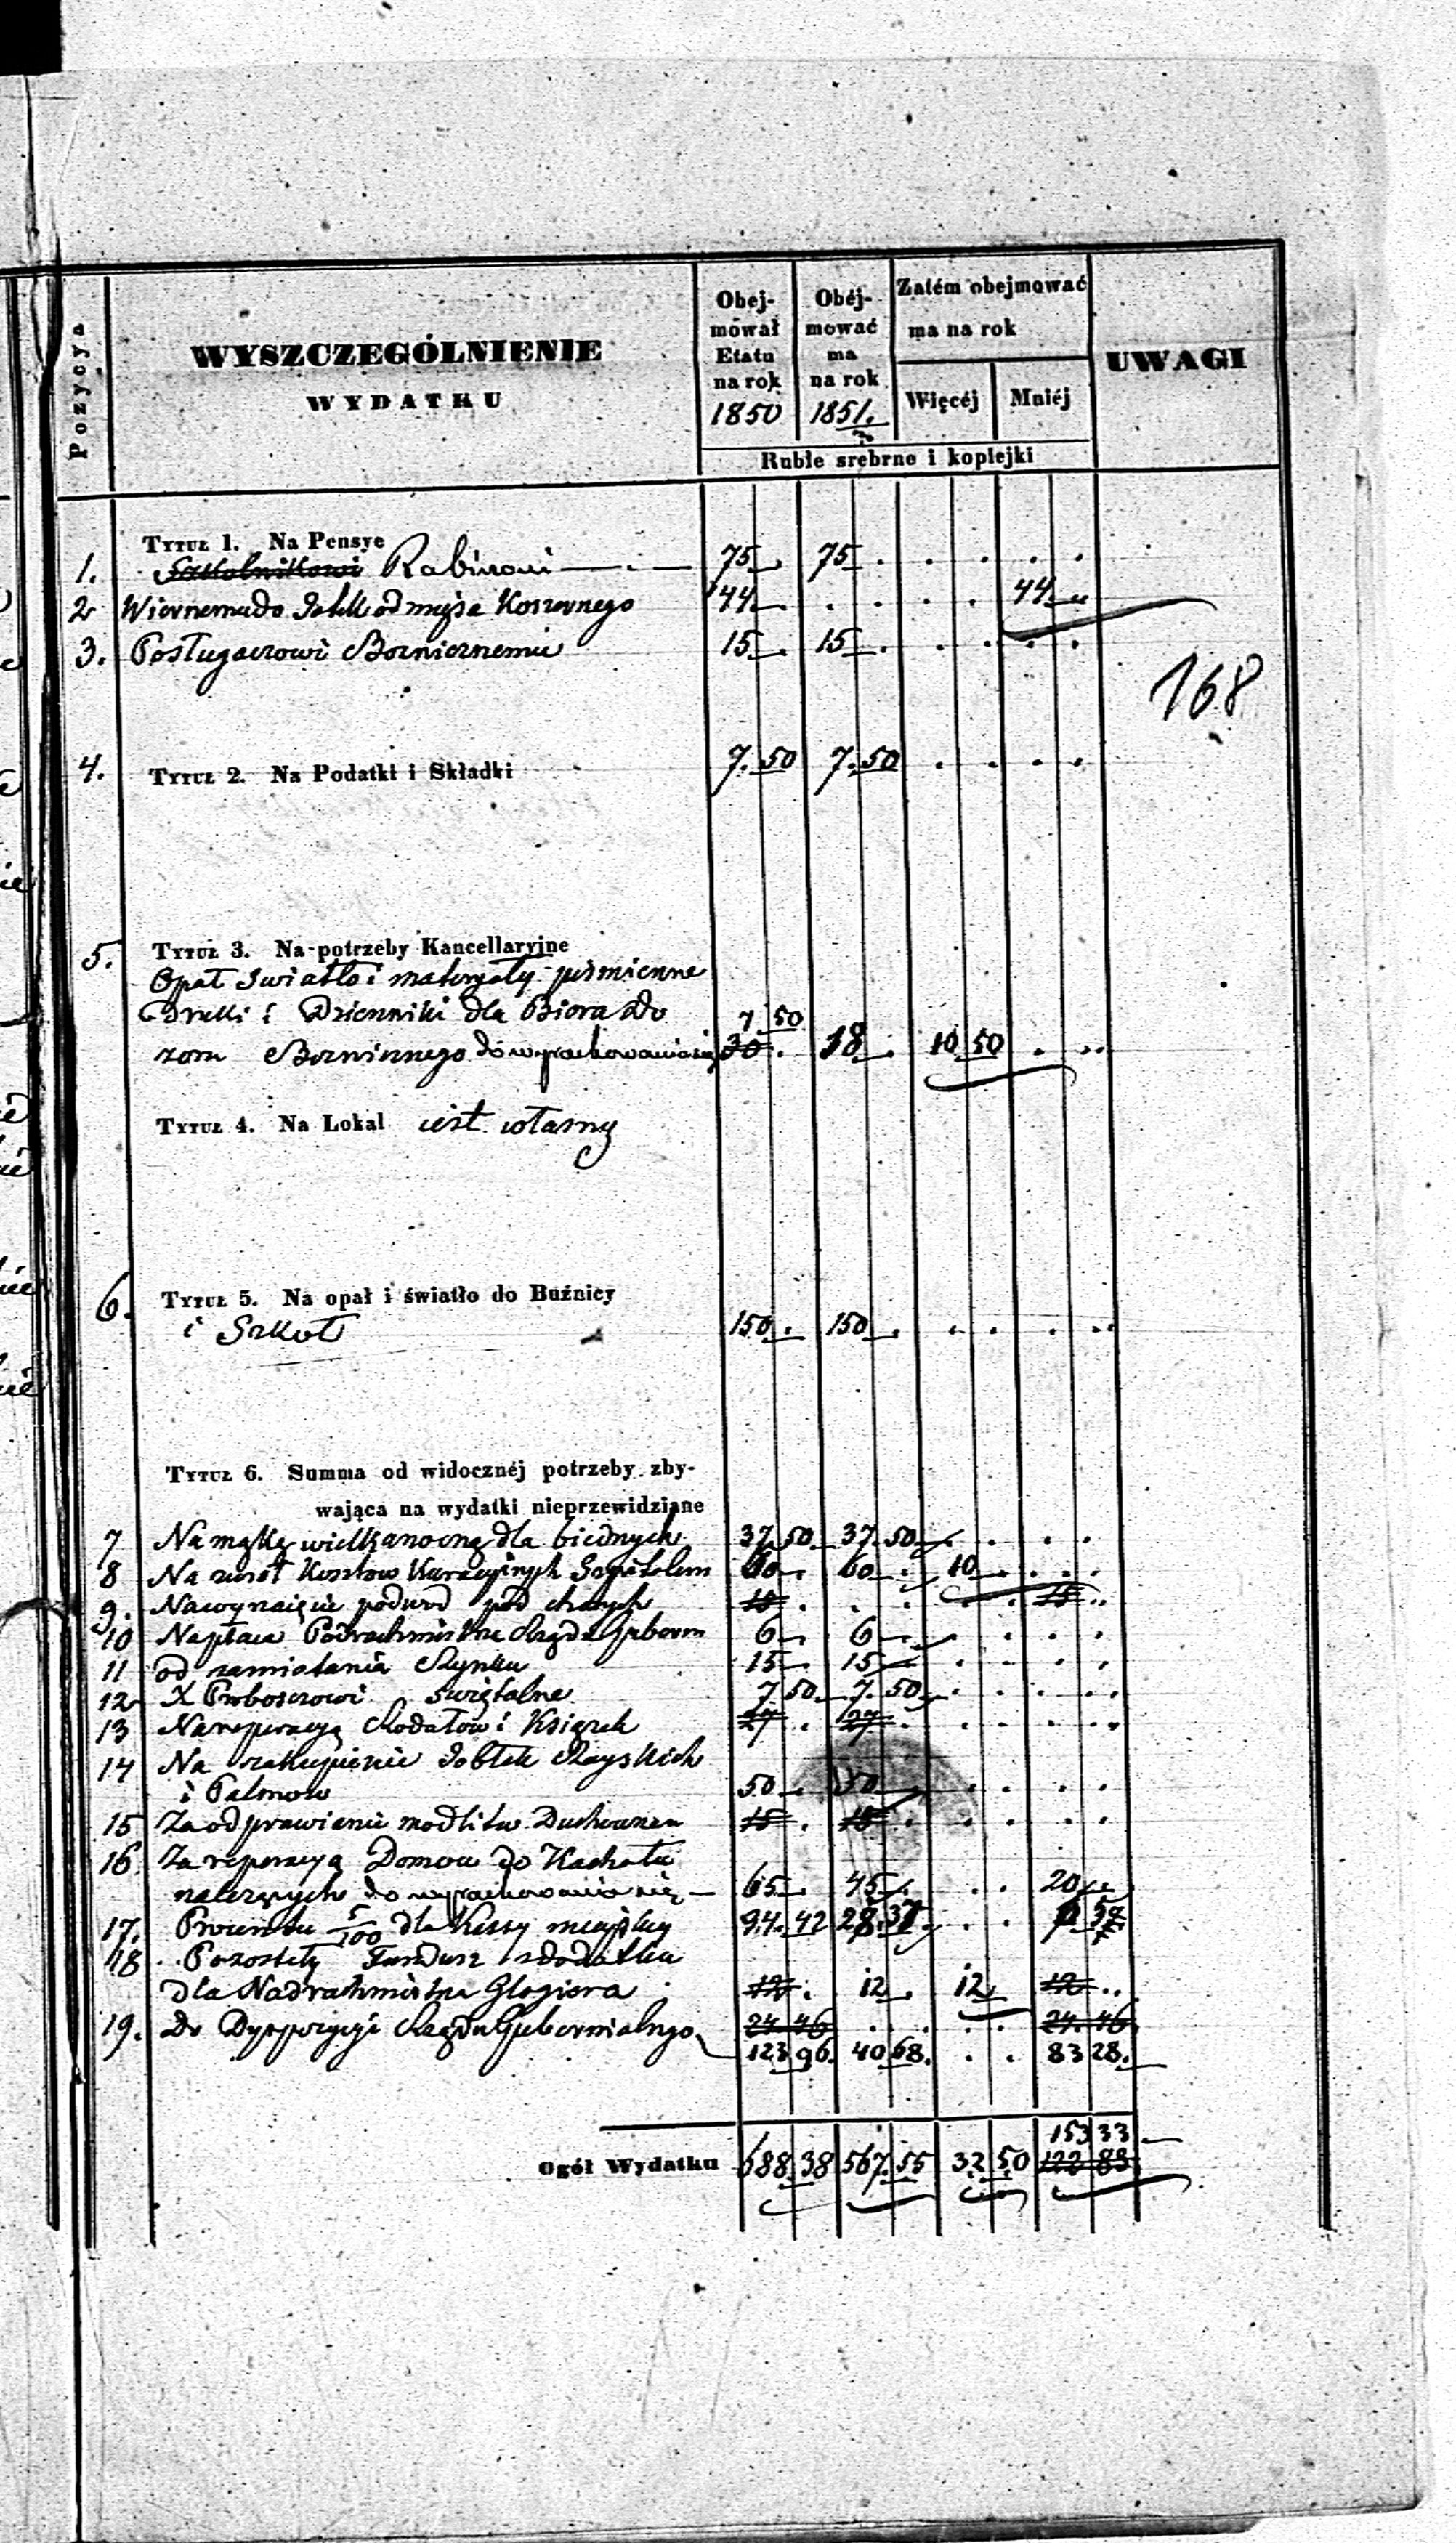 Pozycya
WYSZCZEGÓLNIENIE
WYDATKU
Obej-
mował
Etatu
na rok
1850
Obéj-
mować
ma
na rok
1851.
Zatém obejmować
ma na rok
Więcéj
Mniéj
UWAGI
Ruble srebrne i kopiejki
TYTUŁ 1. Na Pensye
1. Szkolnikowi Rabinowi 75 . 75 . . . . .
2 Wiernemu do Jatek od mięsa Koszernego 44 . . . . . 44
3. Posługaczowi Boznicznemu 15 . 15 . . . . .
168
4. TYTUŁ 2. Na Podatki i Składki 7. 50 7. 50 . . . .
5. TYTUŁ 3. Na potrzeby Kancellaryjne
Opał Swiatło i materyały piśmienne
Druki i Dzienniki dla Biora Do 7 50
zoru Boznicznego do wyrachowania się 30 . 18 . 10 50 . .
TYTUŁ 4. Na Lokal iest własny
6. TYTUŁ 5. Na opał i światło do Buźnicy
i Szkoł 150 . 150 . . . . .
TYTUŁ 6. Summa od widocznéj potrzeby zby-
wająca na wydatki nieprzewidziane
7 Na mąkę wielkanocną dla biednych 37. 50 37. 50 . . . .
8 Na zwrot Kosztow Kuracyinych Szpitalom 60 60 . 10 . . .
9. Na wynaięcie podwod pod chorych 15 . . . . . 15 ..
10 Na płace Rządu Gubern 6 6 . . . .
11 od zamiatania Rynku 15 . 15 . . . .
12 X Proboszczowi 7. 50 7. 50 . . . .
13 Na reperacyą Rodałow i Książek 27 . 27 . . . . .
14 Na zakupienie Jabłek Rayskich
i Palmow 50 . 50 . . . .
15 Za odprawienie modlitw Duchownem 15 . 15 . . . . .
16. Za reperacyą Domow do Kachału
należących do wyrachowania się 65 . 45 . . . 20
17. Procentu 5/100 dla Kassy mieyskiey 94. 42 28. 37
18 Pozostały Fundusz z dodatku
dla Nadrachmistrza Glogiera 12 . 12 . 12 12 ..
19. Do Dyspozycyi Rządu Gubernialnego 24 46 . . . . 24. 46
123 96. 40 68. . . 83 28.
153 33
Ogół Wydatku 688 38 567. 55 32 50 122 83